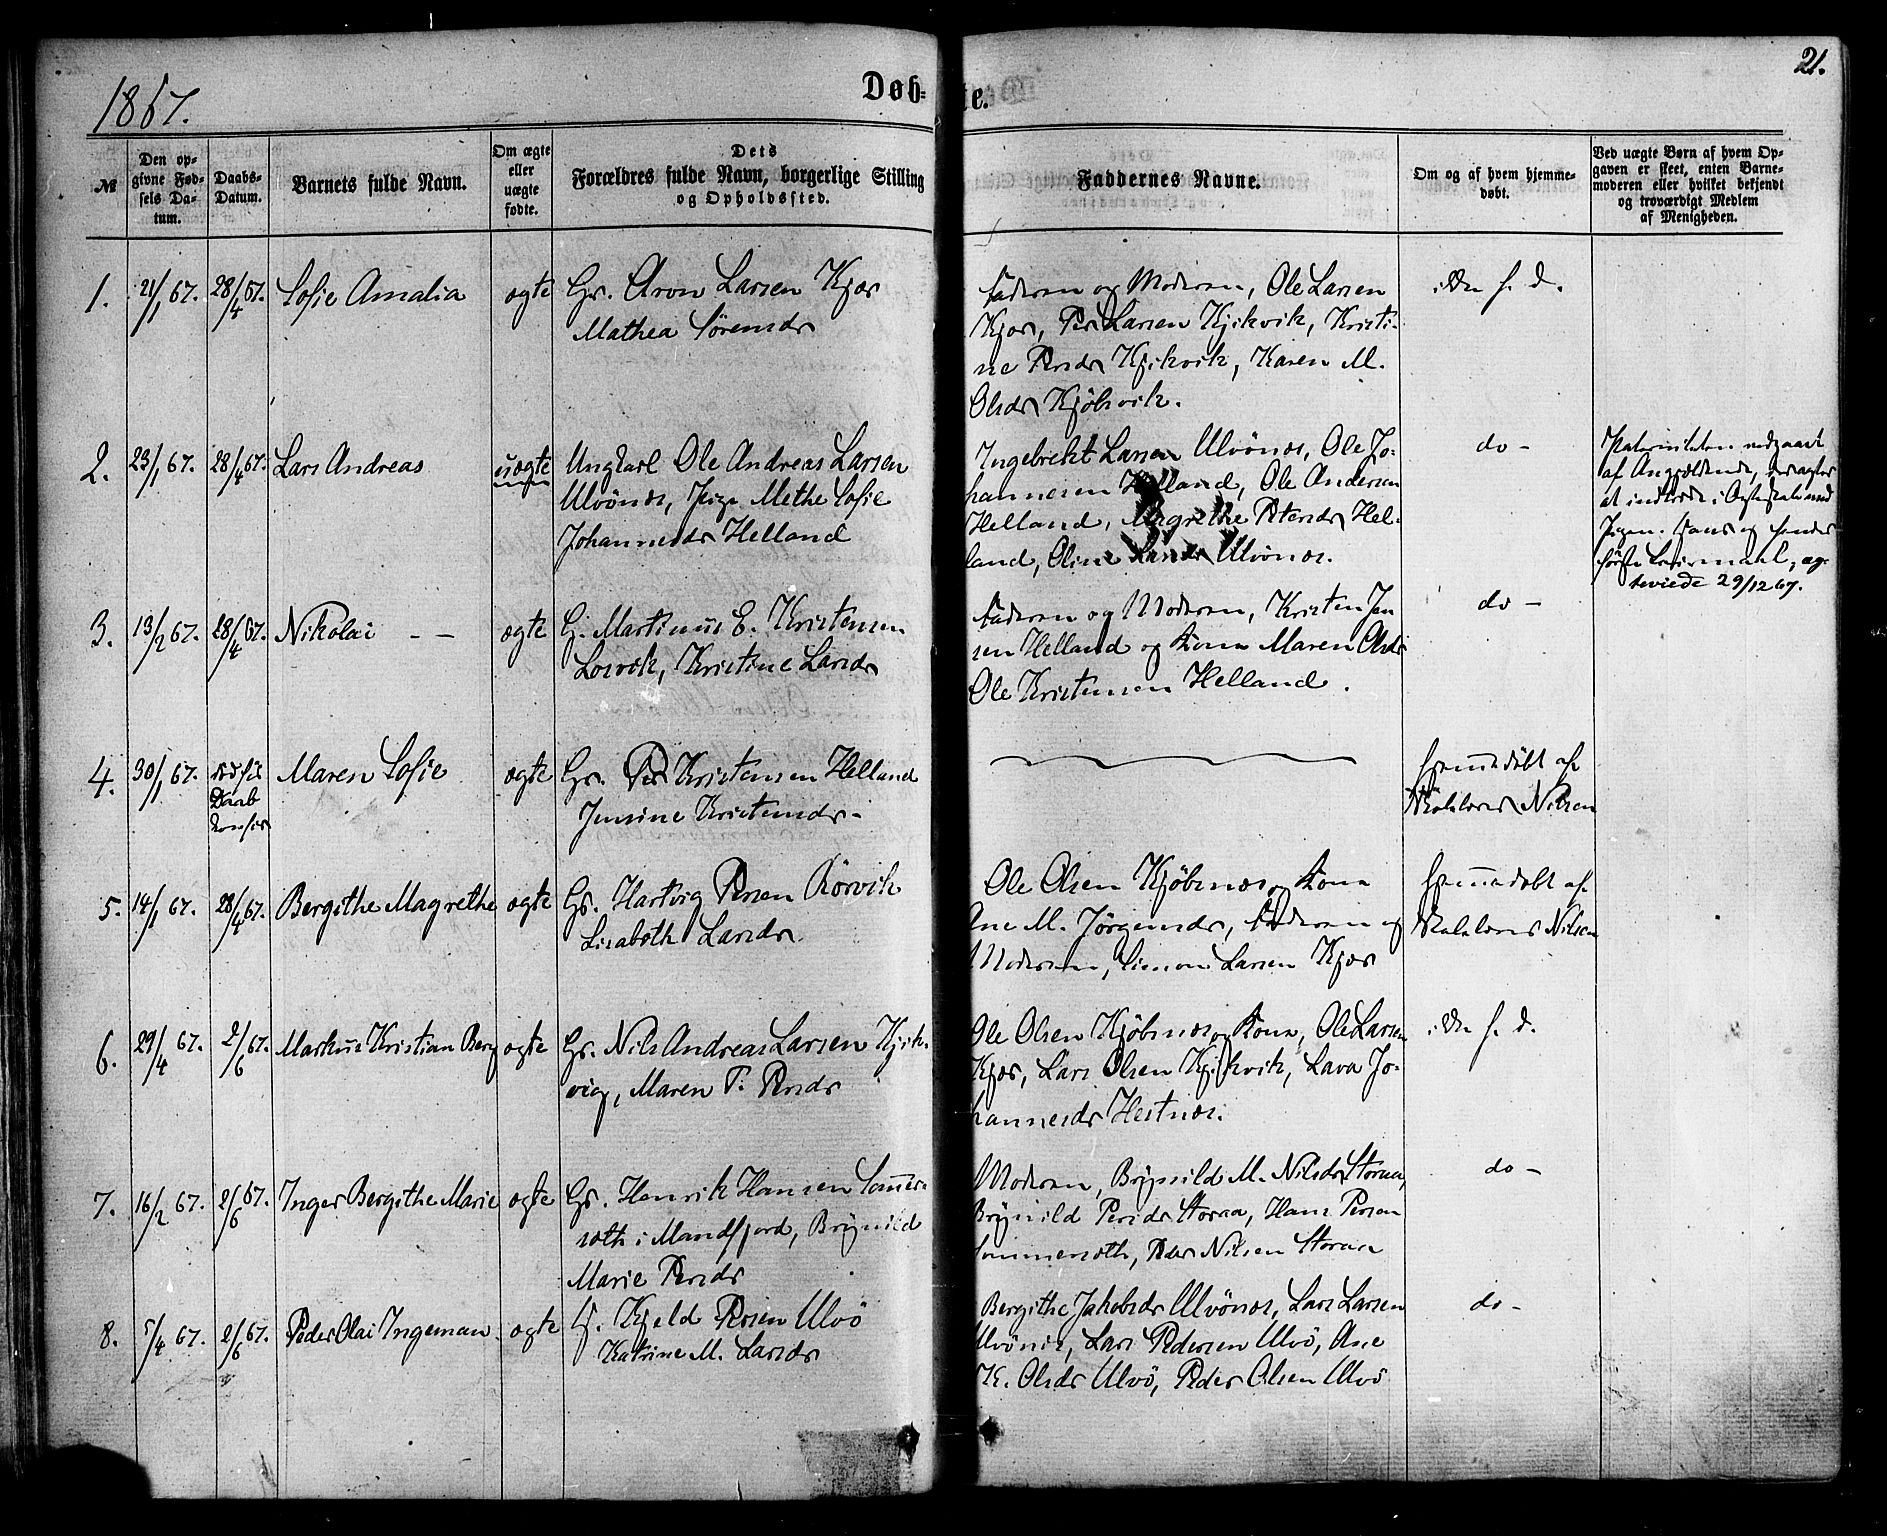 21.
1867.
Døb-
te.
№
Den op-
givne Fød-
sels Da-
tum.
Daabs-
Datum.
Barnets fulde Navn.
Om ægte
eller
uægte
fødte.
Dets
Forældres fulde Navn, borgerlige Stilling
og Opholdssted.
Faddernes Navne.
Om og af hvem hjemme-
døbt.
Ved uægte Børn af hvem Op-
gaven er skeet, enten Barne-
moderen eller hvilket bekjendt
og troværdigt Medlem
af Menigheden.
1. 21/1 67. 28/4 67. Sofie Amalia ægte Gr. Aron Larsen Kjær
Mathea Sørensdr
Faderen og Moderen, Ole Larsen
Kjær, Per Larsen Kjikvik, Kristi-
ne Persdr Kjikvik, Karen M.
Olsdr Kjøbvik.
ikke h. d.
2. 23/1 67. 28/4 67. Lars Andreas uægte Ungkarl Ole Andreas Larsen
Ulvönes, Pige Methe Sofie
Johannesdr Helland
Ingebrekt Larsen Ulvönes, Ole Jo-
hannesen Helland, Ole Andersen
Helland, Magrethe Petersdr Hel-
land, Oline Larsdr Ulvönes.
do -
Paterniteten vedgaaet
af Angjældende, der agter
at indtræde i Ægteskab med
Pigen. Hans og hendes
første Leiermaal, æg-
teviede 29/12 67.
3. 13/2 67. 28/4 67. Nikolai - - ægte G. Martinus E. Kristensen
Losvik, Kristine Larsdr
Faderen og Moderen, Kristen Jen
sen Helland og Kone Maren Olsdr
Ole Kristensen Helland.
do -
4. 30/1 67. død før
Daab
Maren Sofie ægte Gr. Per Kristensen Helland
Jensine Kristensdr -
hjemmedøbt af
Skolelærer Nilsen
5. 14/1 67. 28/4 67. Bergithe Magrethe ægte Gr. Hartvig Persen Rörvik
Lisabeth Larsdr
Ole Olsen Kjøbnes og Kone
Ane M. Jörgensdr, Faderen og
Moderen, Simon Larsen Kjær
hjemmedøbt af
Skolelærer Nilsen
6. 29/4 67. 2/6 67. Markus Kristian Berg ægte Gr. Nils Andreas Larsen Kjik-
vig, Maren P. Persdr
Ole Olsen Kjøbnes og Kone, Ole Larsen
Kjær, Lars Olsen Kjikvik, Lava Jo-
hannesdr Hestnes.
ikke h. d.
7. 16/2 67. 2/6 67. Inger Bergithe Marie ægte Gr. Henrik Hansen Sommer-
sæth i Mandfjord, Brynild
Marie Persdr
Moderen, Brynild M. Nilsdr Storaa,
Brynild Persdr Storaa, Hans Persen
Sommersæth, Peder Nilsen Storaa
do -
8. 7/4 67. 2/6 67. Peder Olai Ingeman. ægte G. Kjeld Persen Ulvö
Katrine M. Larsdr
Bergithe Jakobsdr Ulvönes, Lars Larsen
Ulvönes, Lars Pedersen Ulvö, Ane
K. Olsdr Ulvö, Peder Olsen Ulvö
do -